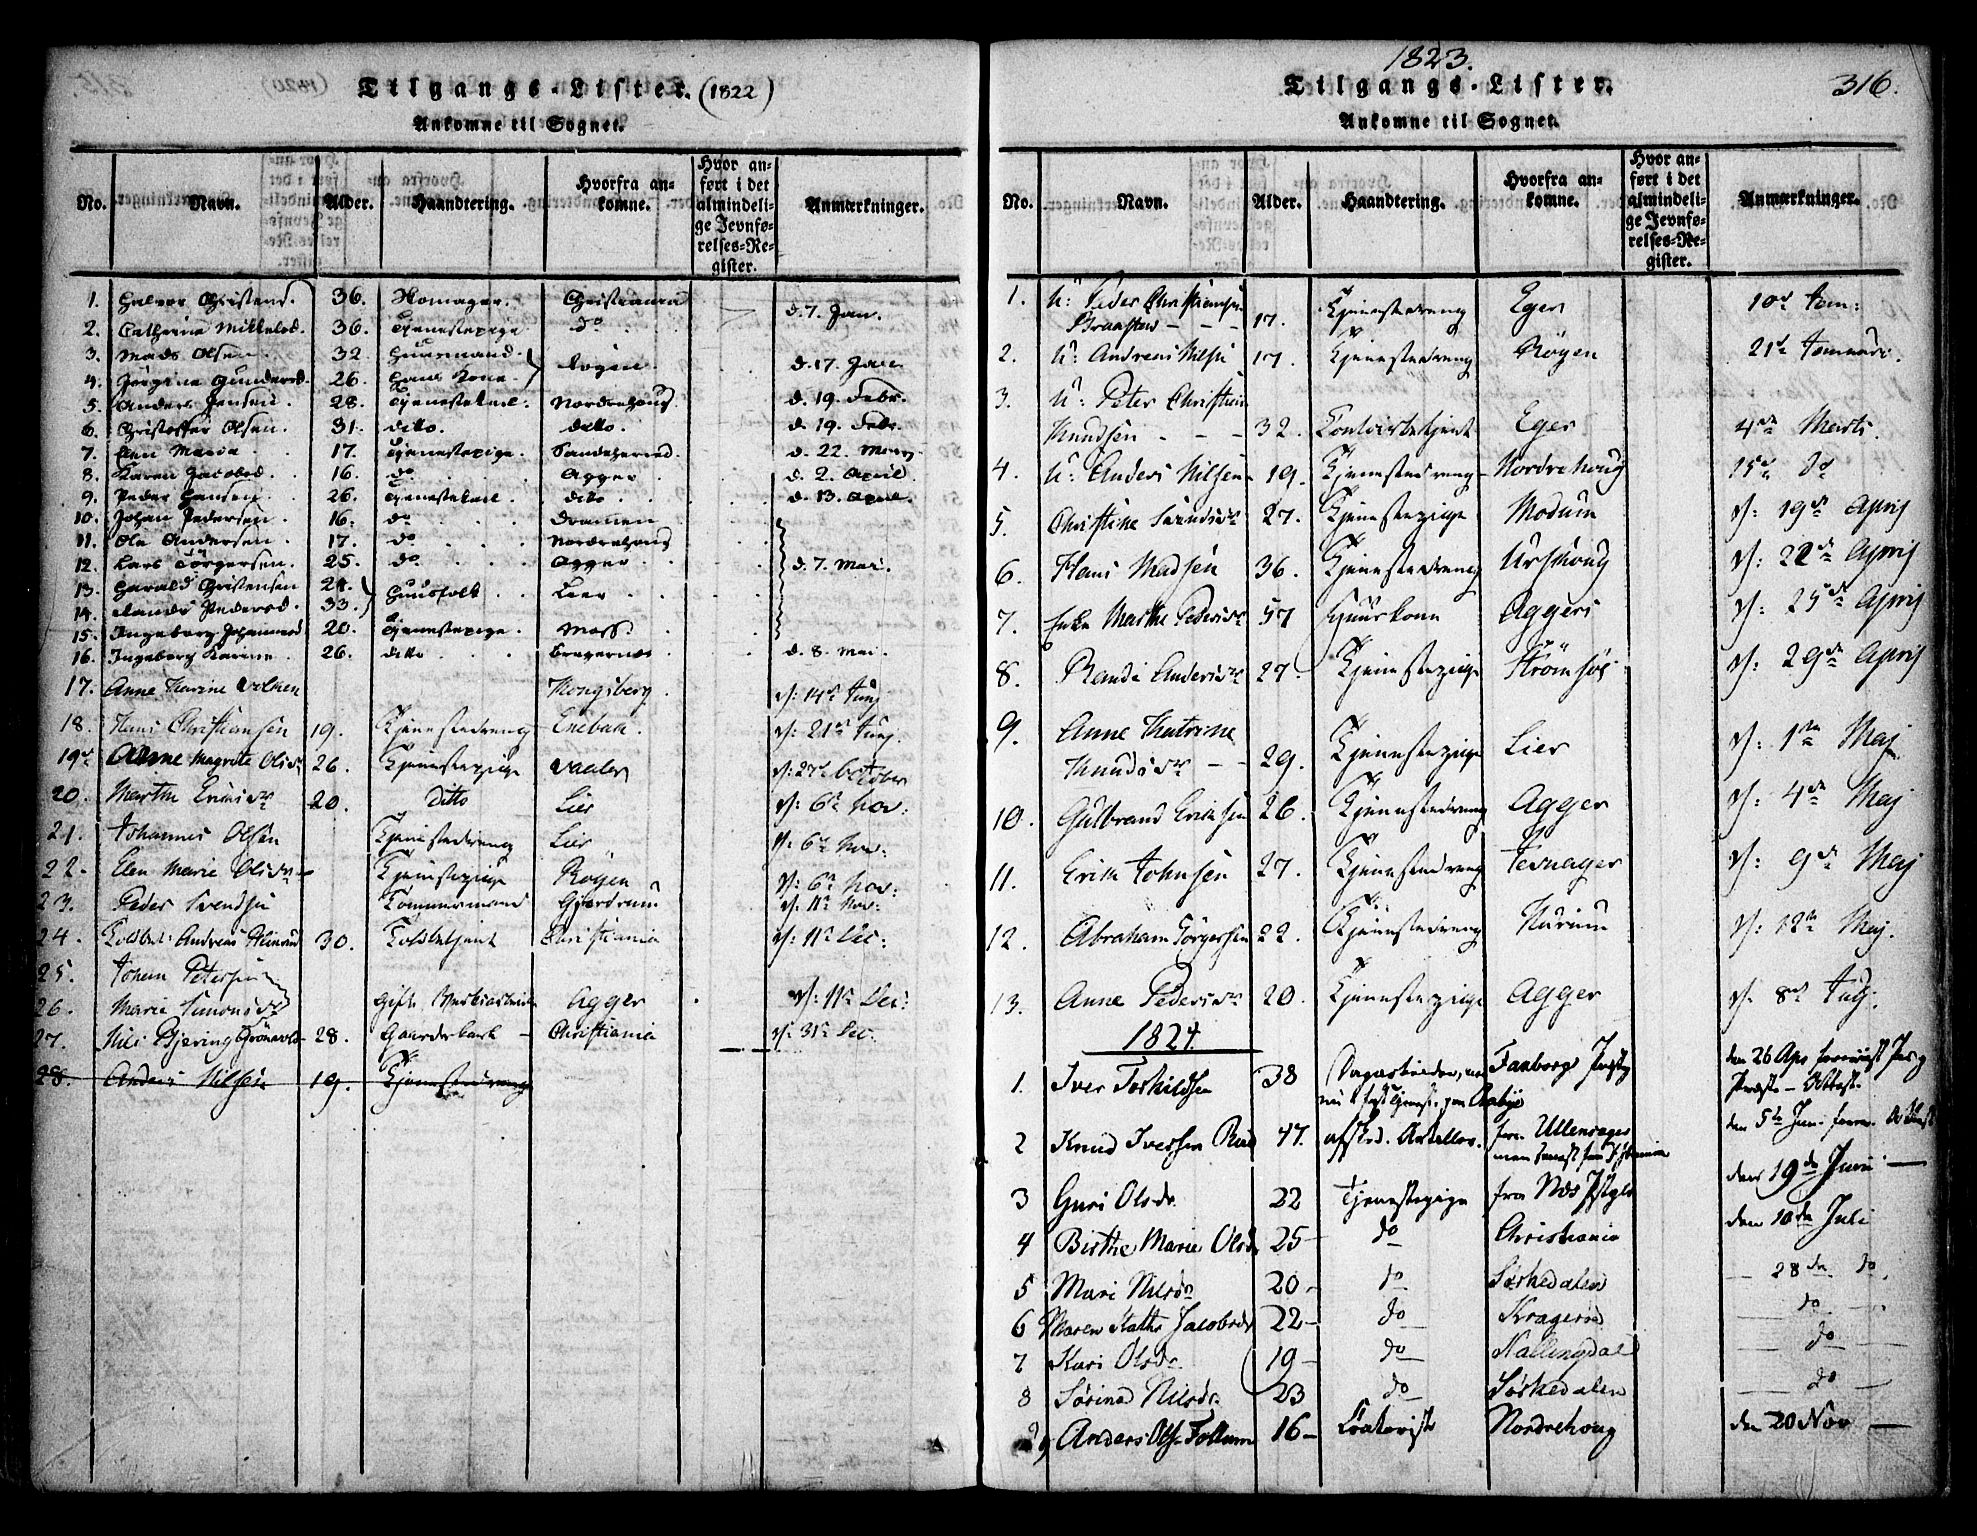 Tilgangs-Lister. (1822)
Ankomne til Sognet.
No. Navn. Alder. Haandtering. Hvorfra ankomne. Hvor anført i det almindelige Jevnførelses-Register. Anmærkninger.
1. Halvor Christens. 36. Christiania d. 7. Jan.
2. Cathrine Mikkelsd. 36. Tjenestepige do
3. Mads Olsen. 32. Huusmand. Røgen d. 17. Jan.
4. Jørgine Gundersd. 26. Hans Kone.
5. Anders Jensen. 28. Tjenestekarl. Nordrehoug. d. 19. Febr.
6. Christoffer Olsen. 31. ditto. ditto. d. 19. Febr.
7. Maria 17. Tjenestepige. d. 22. Marz
8. Karen Jacobsd. 16. do Agger d. 2. April
9. Peder Hansen. 26. Tjenestekarl. ditto. d. 13. April.
10. Johan Pedersen. 16. do Drammen
11. Ole Andersen. 17. do Nordrehoug
12. Lars Törgersen. 25. do Agger d. 7. Mai.
13. Harald Christensen 24. Huusfolk Lier
14. Pedersd. 33.
15. Ingeborg Johannesd 20. Tjenestepige. Moss.
16. Ingeborg Karine 26. ditto Bragernes d. 8. Mai.
17. Anne Karine Kongsberg. d: 14de Junj
18. Hans Christiansen 19. Tjenestedreng Enebak. d: 21de Junj.
19. Anne Magrete Olsdr 26. Tjenestepige Vaaler d: 27de October
20. Marthe Eriksdr 20. Ditto Lier d: 6te Nov:
21. Johannes Olsen Tjenestedreng Lier d: 6te Nov:
22. Elen Marie Olsdr Tjenestepige Røgen d: 6te Nov:
23. Peder Svendsen Tömmermand Gjerdrum d: 11te Nov:
24. Toldbet: Andreas 30. Toldbetjent Christiania d: 11te Dec:
25. Johan Petersen
26. Marie Simonsdr gifte Agger d: 11te Dec:
27. Nils Bjering Grönvold 28. Christiania d: 31te Dec:
28. Anders Nilsen 19. Tjenestedreng
1823.
316.
Tilgangs-Lister.
Ankomne til Sognet.
No. Navn. Alder. Haandtering. Hvorfra ankomne. Hvor anført i det almindelige Jevnførelses-Register. Anmærkninger.
1. U: Peder Christiansen
Braasten 17. Tjenestedreng Eger 10de Jan:
2. U: Andreas Nilsen 17. Tjenestedreng Røgen 21de Januari.
3. U: Peter Christian
Knudsen 32. Contoirbetjent Eger 4de Marts.
4. U: Anders Nilsen 19. Tjenestedreng Nordrehoug 15de do
5. Christine 27. Tjenestepige Modum d: 19de April
6. Hans Madsen 36. Tjenestedreng Urskoug d: 22de April
7. Enke Marthe Pedersdr 57 Huuskone Aggers d: 25de April
8. Randi Andersdr 27. Tjenestepige Strömsöe d: 29de April
9. Anne Katrine
Knudsdr 29. Tjenestepige Lier d: 1ste Maj
10. Gulbrand Eriksen 26. Tjenestedreng Agger d: 4de Maj
11. Erik Johnsen 27. Tjenestedreng d: 9de Maj
12. Abraham Törgersen 22. Tjenestedreng Hurum d: 12te Maj.
13. Anne Pedersdr 20. Tjenestepige Agger d: 8de Julj.
1824.
1. Iver Torkildsen 38 Faaborg den 26 Apr
Attest.
2 Knud Iversen Rud 47. afsked. Artiller. fra Ullensager den 5te Juni
3 Guri Olsdr. 22 Tjenestepige fra Næs den 19de Juni
4 Birthe Marie Olsd. 25 do Christiania den 10de Juli
5 Mari Nilsdr 20 do Sørkedalen 28de do.
6 Maren Kathr Jacobsdr 22 do Kragerøe do
7 Kari Olsdr. 19 do Hallingdal do
8 Sørine Nilsdr. 23 do Sørkedalen do
9 Anders Olse Follum 16 Nordrehoug den 20 Nov